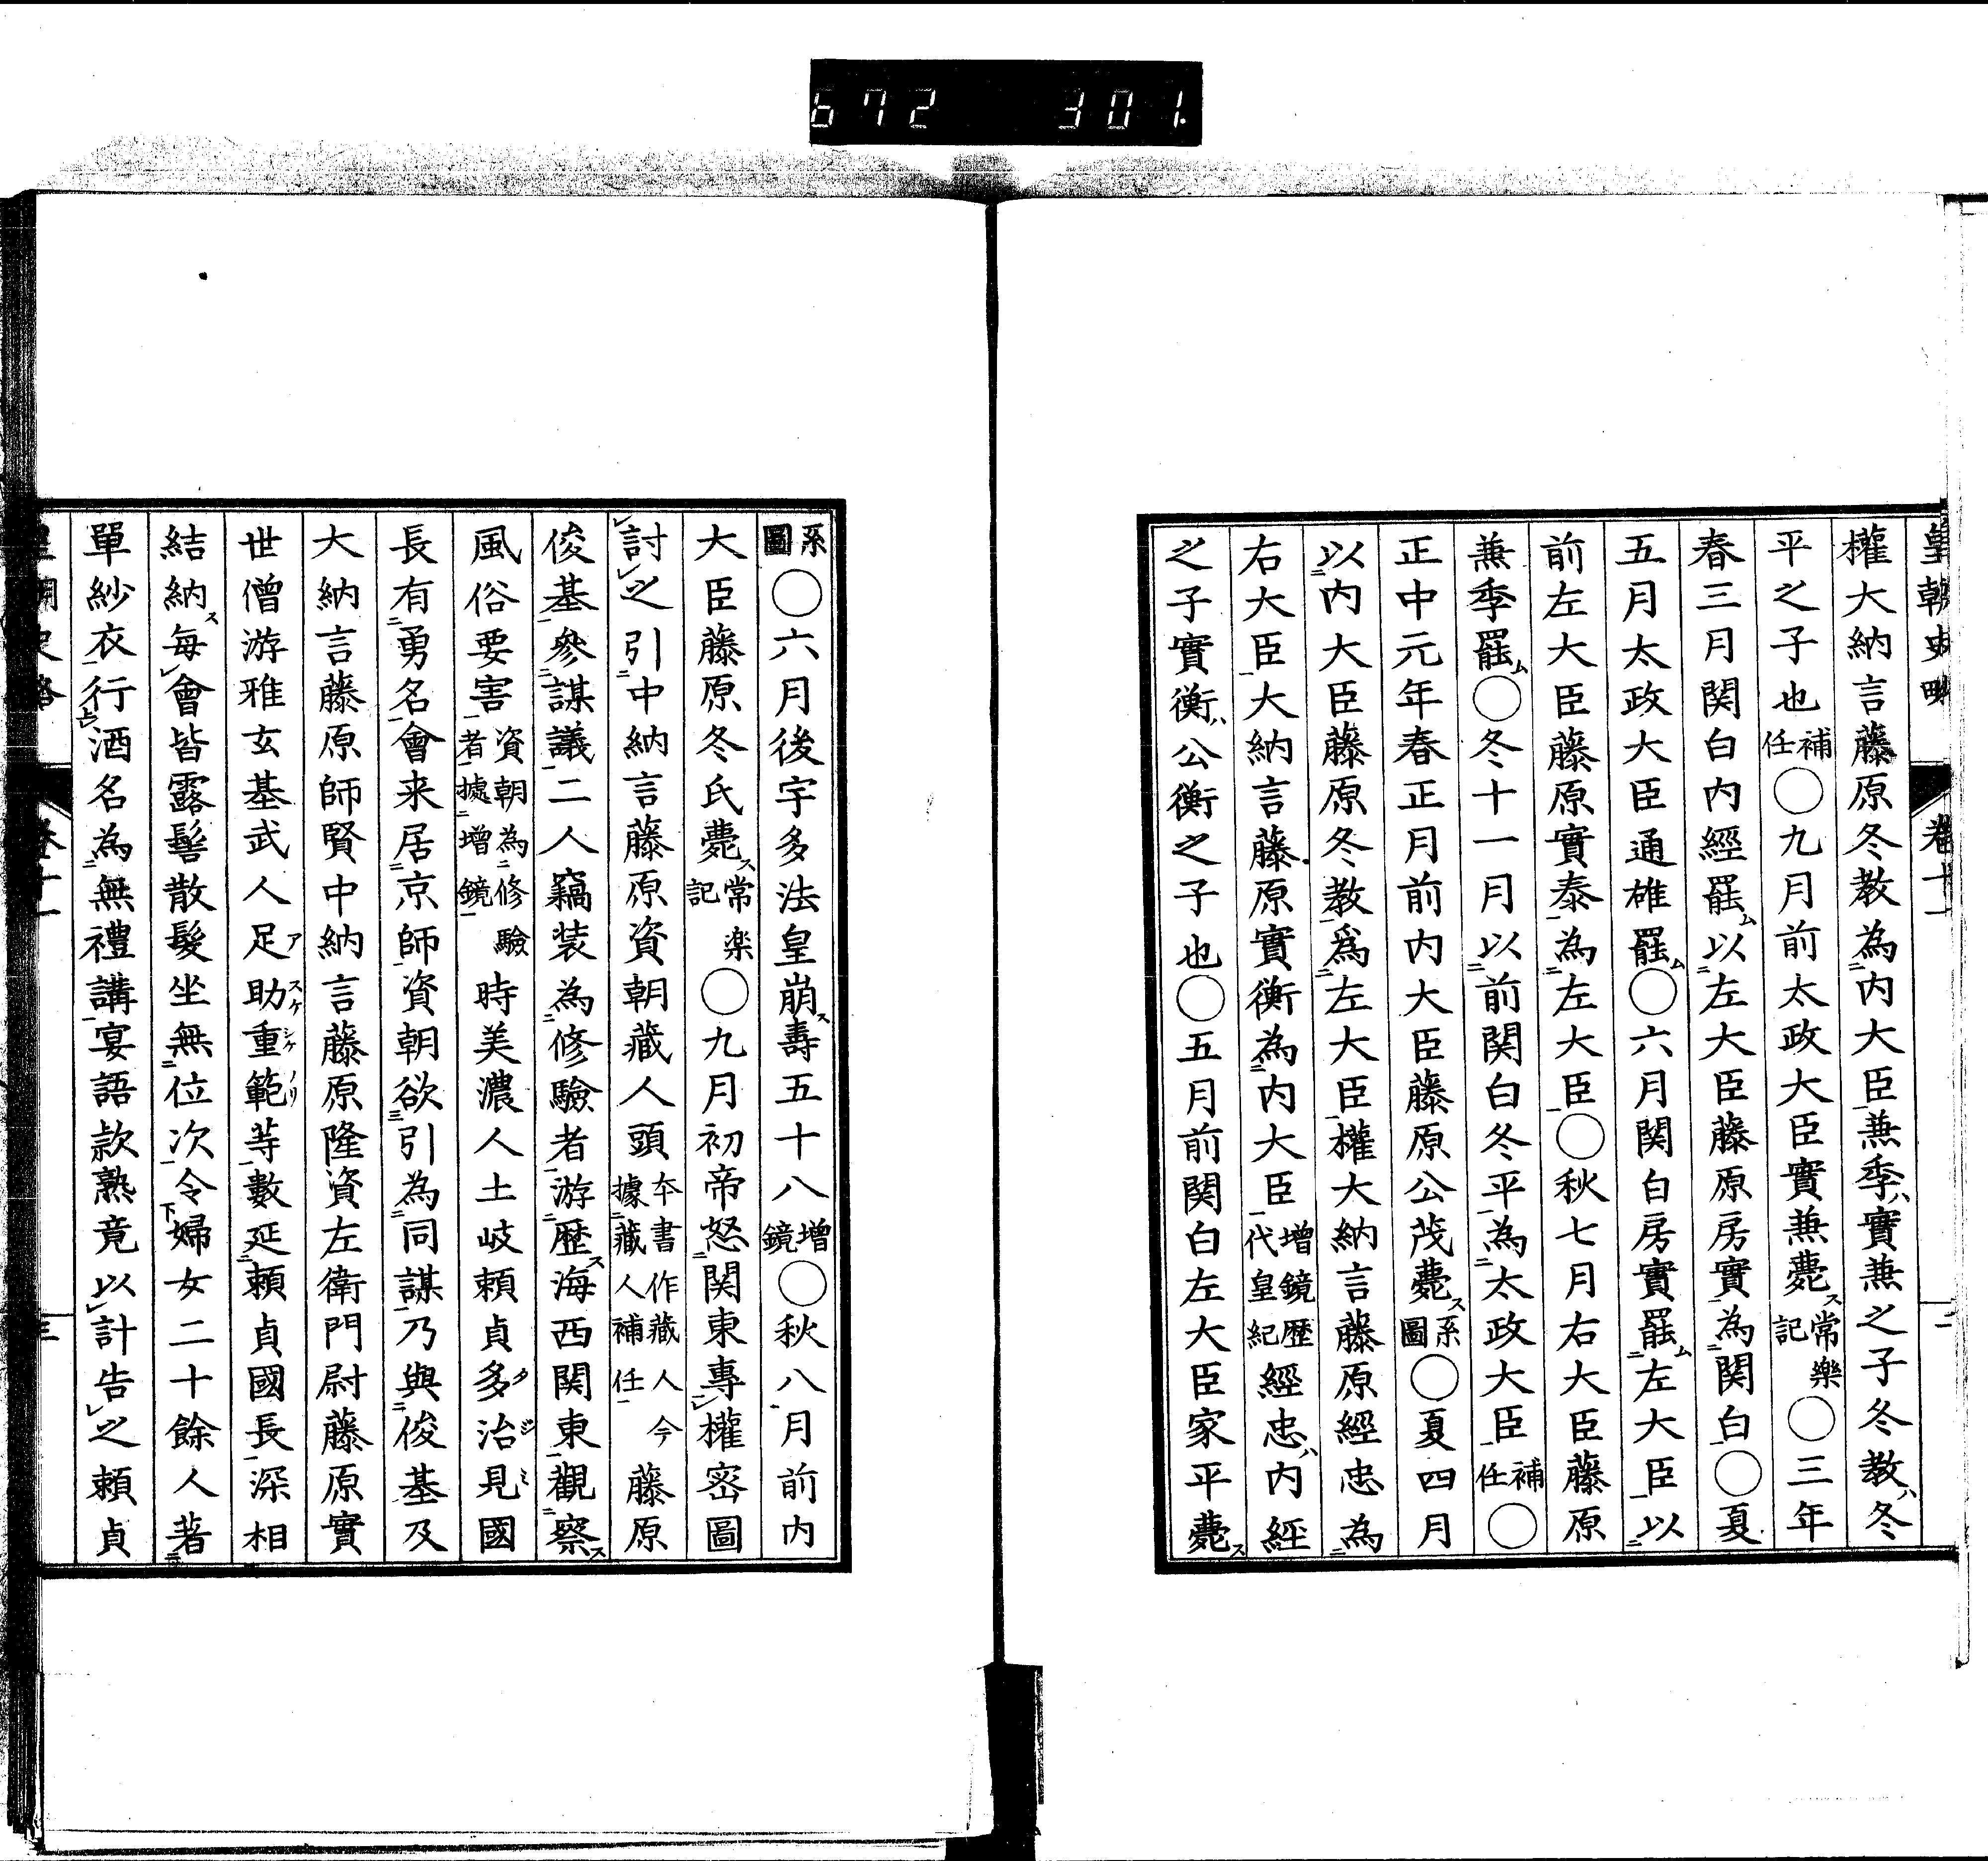 672 301.
皇朝史略 卷十一 二
權大納言藤原冬教為二内大臣一兼季ハ實兼之子冬教ハ冬
平之子也補任○九月前太政大臣實兼薨ス常樂記○三年
春三月関白内經罷ム以二左大臣藤原房實一為二関白一○夏
五月太政大臣通雄罷ム○六月関白房實罷ム二左大臣一以二
前左大臣藤原實泰一為二左大臣一○秋七月右大臣藤原
兼季罷ム○冬十一月以二前関白冬平一為二太政大臣一補任○
正中元年春正月前内大臣藤原公茂薨ス系圖○夏四月
以二内大臣藤原冬教一爲二左大臣一權大納言藤原經忠為二
右大臣一大納言藤原實衡為二内大臣一增鏡歷代皇紀經忠ハ内經
之子實衡ハ公衡之子也○五月前関白左大臣家平薨ス
系圖○六月後宇多法皇崩ス壽五十八增鏡○秋八月前内
大臣藤原冬氏薨ス常楽記○九月初帝怒二関東專レ權密圖
討レ之引二中納言藤原資朝藏人頭本書作藏人今據二藏人補任一藤原
俊基一參二謀議一二人竊装為二修驗者一游二歷ス海西関東一觀二察ス
風俗要害一資朝為二修驗者一據二增鏡一時美濃人土岐頼貞多治見國
長有二勇名一會来居二京師一資朝欲三引為二同謀一乃與二俊基及
大納言藤原師賢中納言藤原隆資左衛門尉藤原實
世僧游雅玄基武人足助重範等一數延二頼貞國長一深相
結納ス每レ會皆露髻散髮坐無二位次一令下婦女二十餘人著二
單紗衣一行上酒名為二無禮講一宴語款熟竟以レ計告レ之頼貞
皇朝史略 卷十一 三